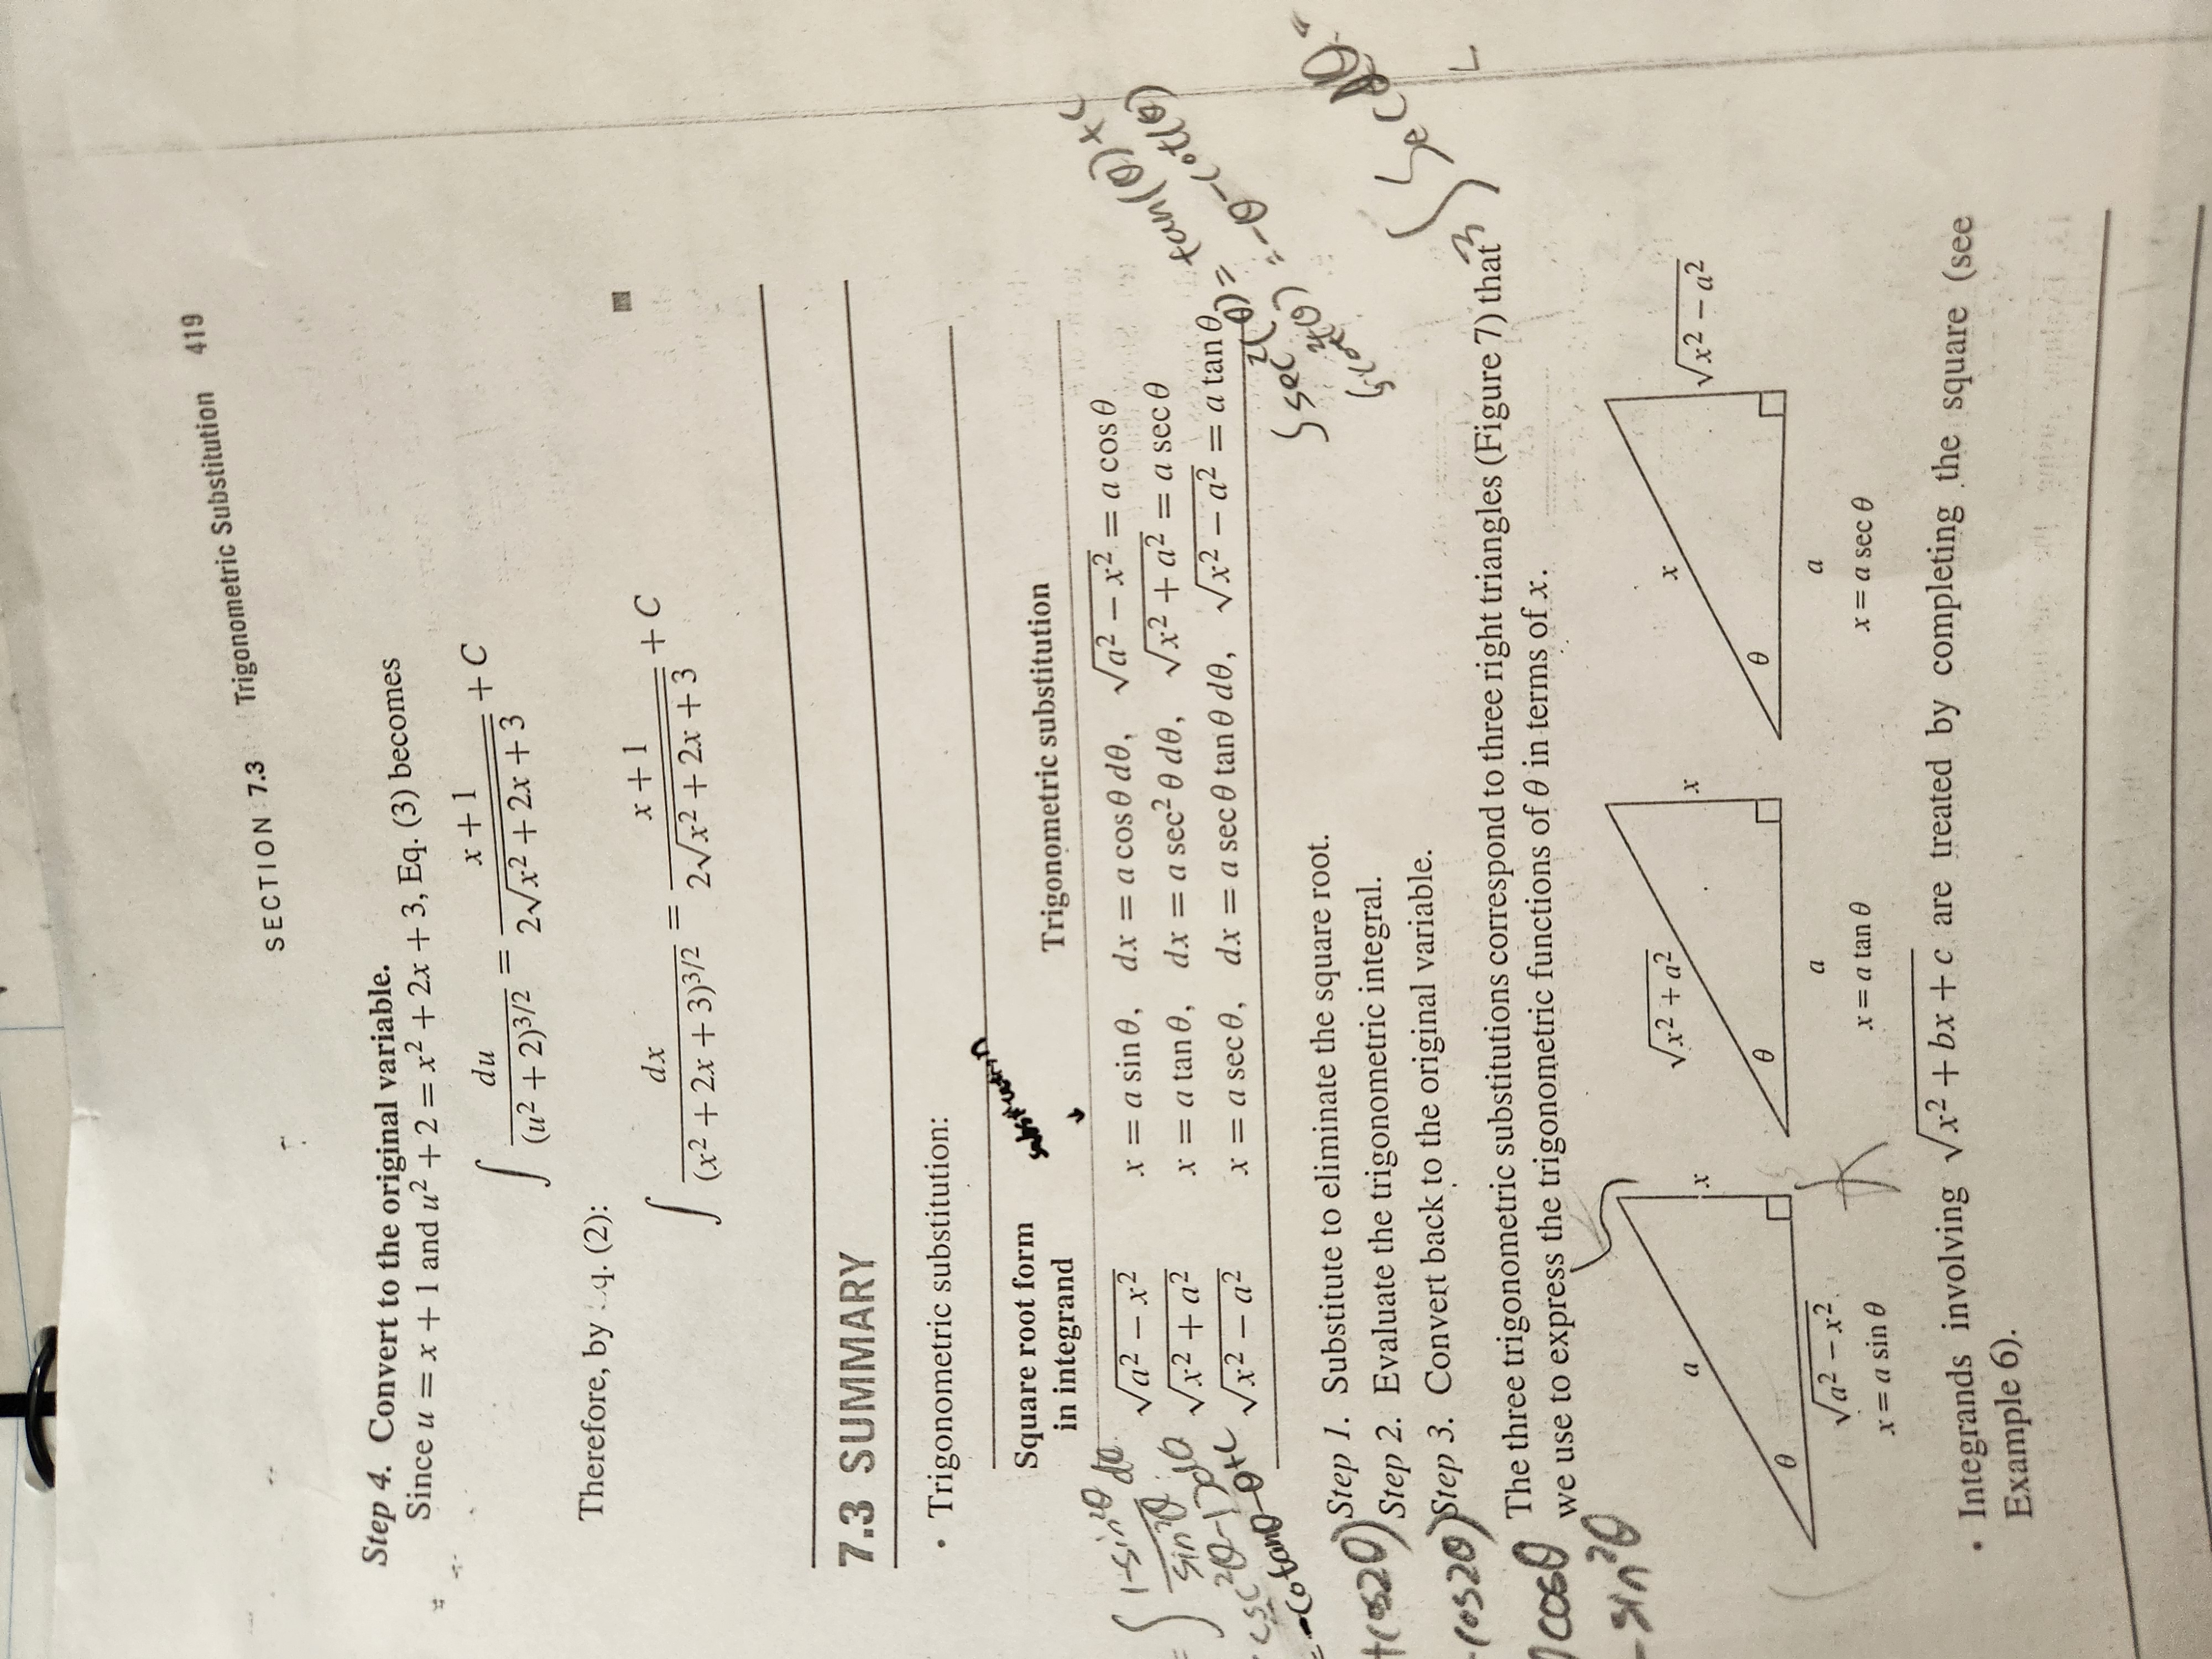 SECTION 7.3 Trigonometric Substitution 419
Step 4. Convert to the original variable.
Since u = x + 1 and u² + 2 = x² + 2x + 3, Eq. (3) becomes
∫ du / (u² + 2)^{3/2} = (x + 1) / (2√(x² + 2x + 3)) + C
Therefore, by q. (2):
∫ dx / (x² + 2x + 3)^{3/2} = (x + 1) / (2√(x² + 2x + 3)) + C
7.3 SUMMARY
• Trigonometric substitution:
Square root form in integrand Trigonometric substitution
√(a² − x²) x = a sin θ, dx = a cos θ dθ, √(a² − x²) = a cos θ
√(x² + a²) x = a tan θ, dx = a sec² θ dθ, √(x² + a²) = a sec θ
√(x² − a²) x = a sec θ, dx = a sec θ tan θ dθ, √(x² − a²) = a tan θ
tan(θ) + C
∫ sec²(θ) =
= -θ - cot(θ)
∫ 1-sin²θ / sin²θ dθ
= ∫ csc²θ - 1 dθ
= -cotanθ - θ + C
Step 1. Substitute to eliminate the square root.
Step 2. Evaluate the trigonometric integral.
Step 3. Convert back to the original variable.
+cos2θ)
-cos2θ)
cosθ
- sin²θ
∫ sec
The three trigonometric substitutions correspond to three right triangles (Figure 7) that
we use to express the trigonometric functions of θ in terms of x.
a
x
θ
√(a² − x²)
x = a sin θ
√(x² + a²)
x
θ
a
x = a tan θ
x
√(x² − a²)
θ
a
x = a sec θ
• Integrands involving √(x² + bx + c) are treated by completing the square (see
Example 6).